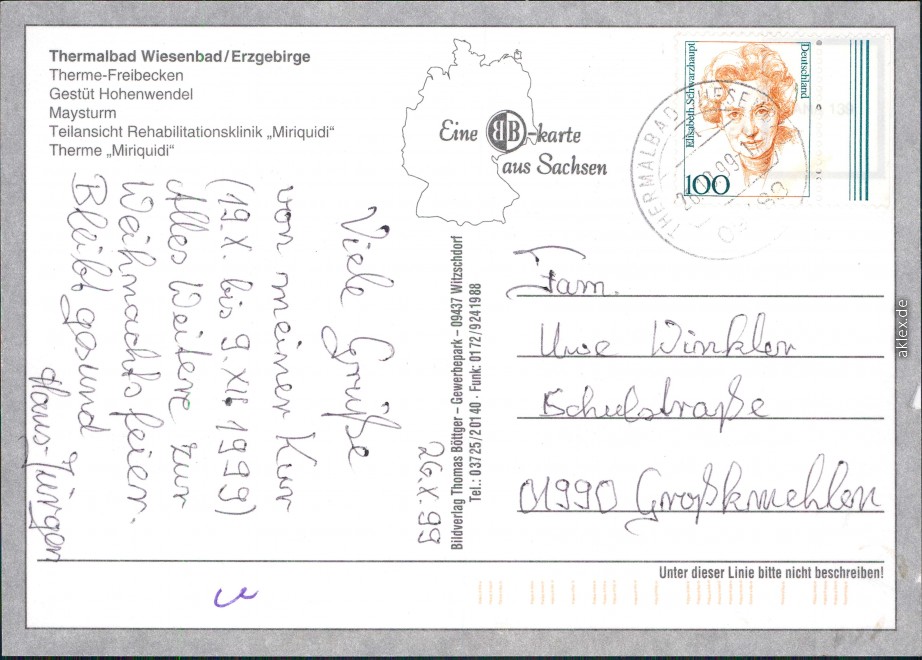 Thermalbad Wiesenbad/Erzgebirge
Therme-Freibecken
Gestüt Hohenwendel
Maysturm
Teilansicht Rehabilitationsklinik „Miriquidi“
Therme „Miriquidi“
Eine BB-karte
aus Sachsen
Elisabeth Schwarzhaupt
Deutschland
100
THERMALBAD WIESENBAD
26.X.99
Viele Grüße
von meiner Kur
(19.X. bis 9.XII.1999)
Alles Weitere zur
Weihnachtsfeier.
Bleibt gesund
Hans-Jürgen
Bildverlag Thomas Böttger – Gewerbepark – 09437 Witzschdorf
Tel.: 03725/20140 · Funk: 0172/9241988
Fam.
Uwe Winkler
Schulstraße
01990 Großkmehlen
Unter dieser Linie bitte nicht beschreiben!
aklex.de